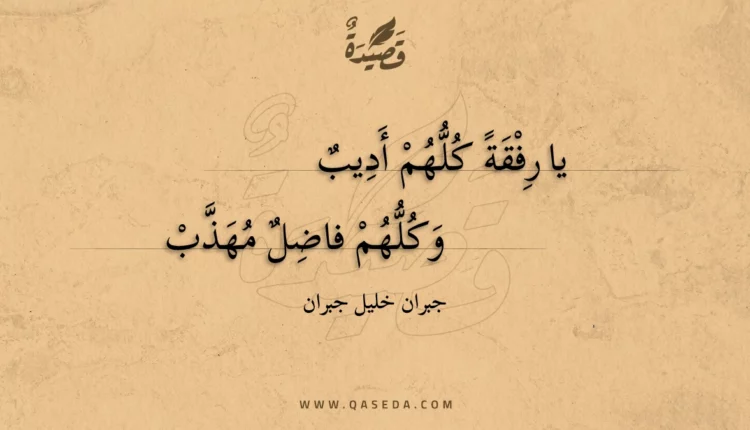 قَصِيدَةٌ
يا رِفْقَةً كُلُّهُمْ أَدِيبٌ
وَكُلُّهُمْ فاضِلٌ مُهَذَّبْ
جبران خليل جبران
WWW.QASEDA.COM